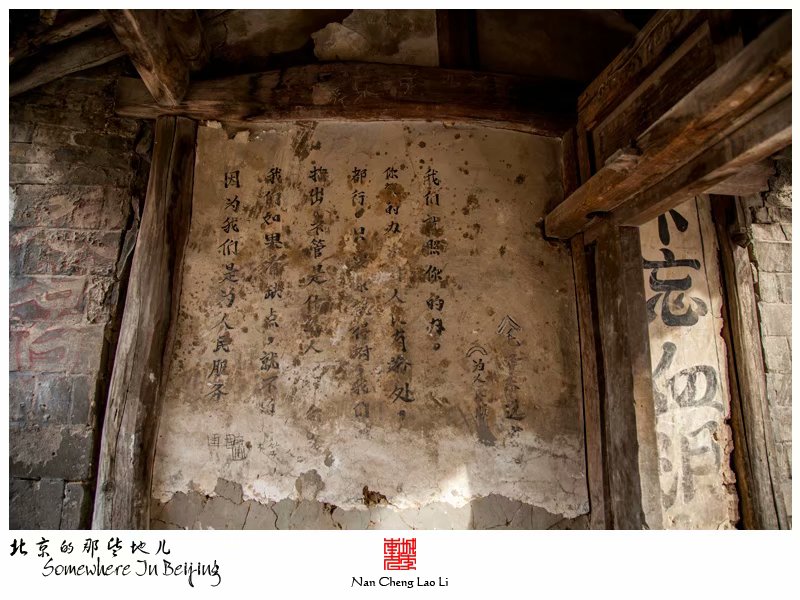 因为我们是为人民服务
我们如果有缺点，就不怕
指出 不管是什么人
都行。只要你说得对，我们
你说的办法对人民有好处。
我们就照你的办。
《为人民
《毛泽东选
不忘血泪
北京的那些地儿
Somewhere In Beijing
Nan Cheng Lao Li